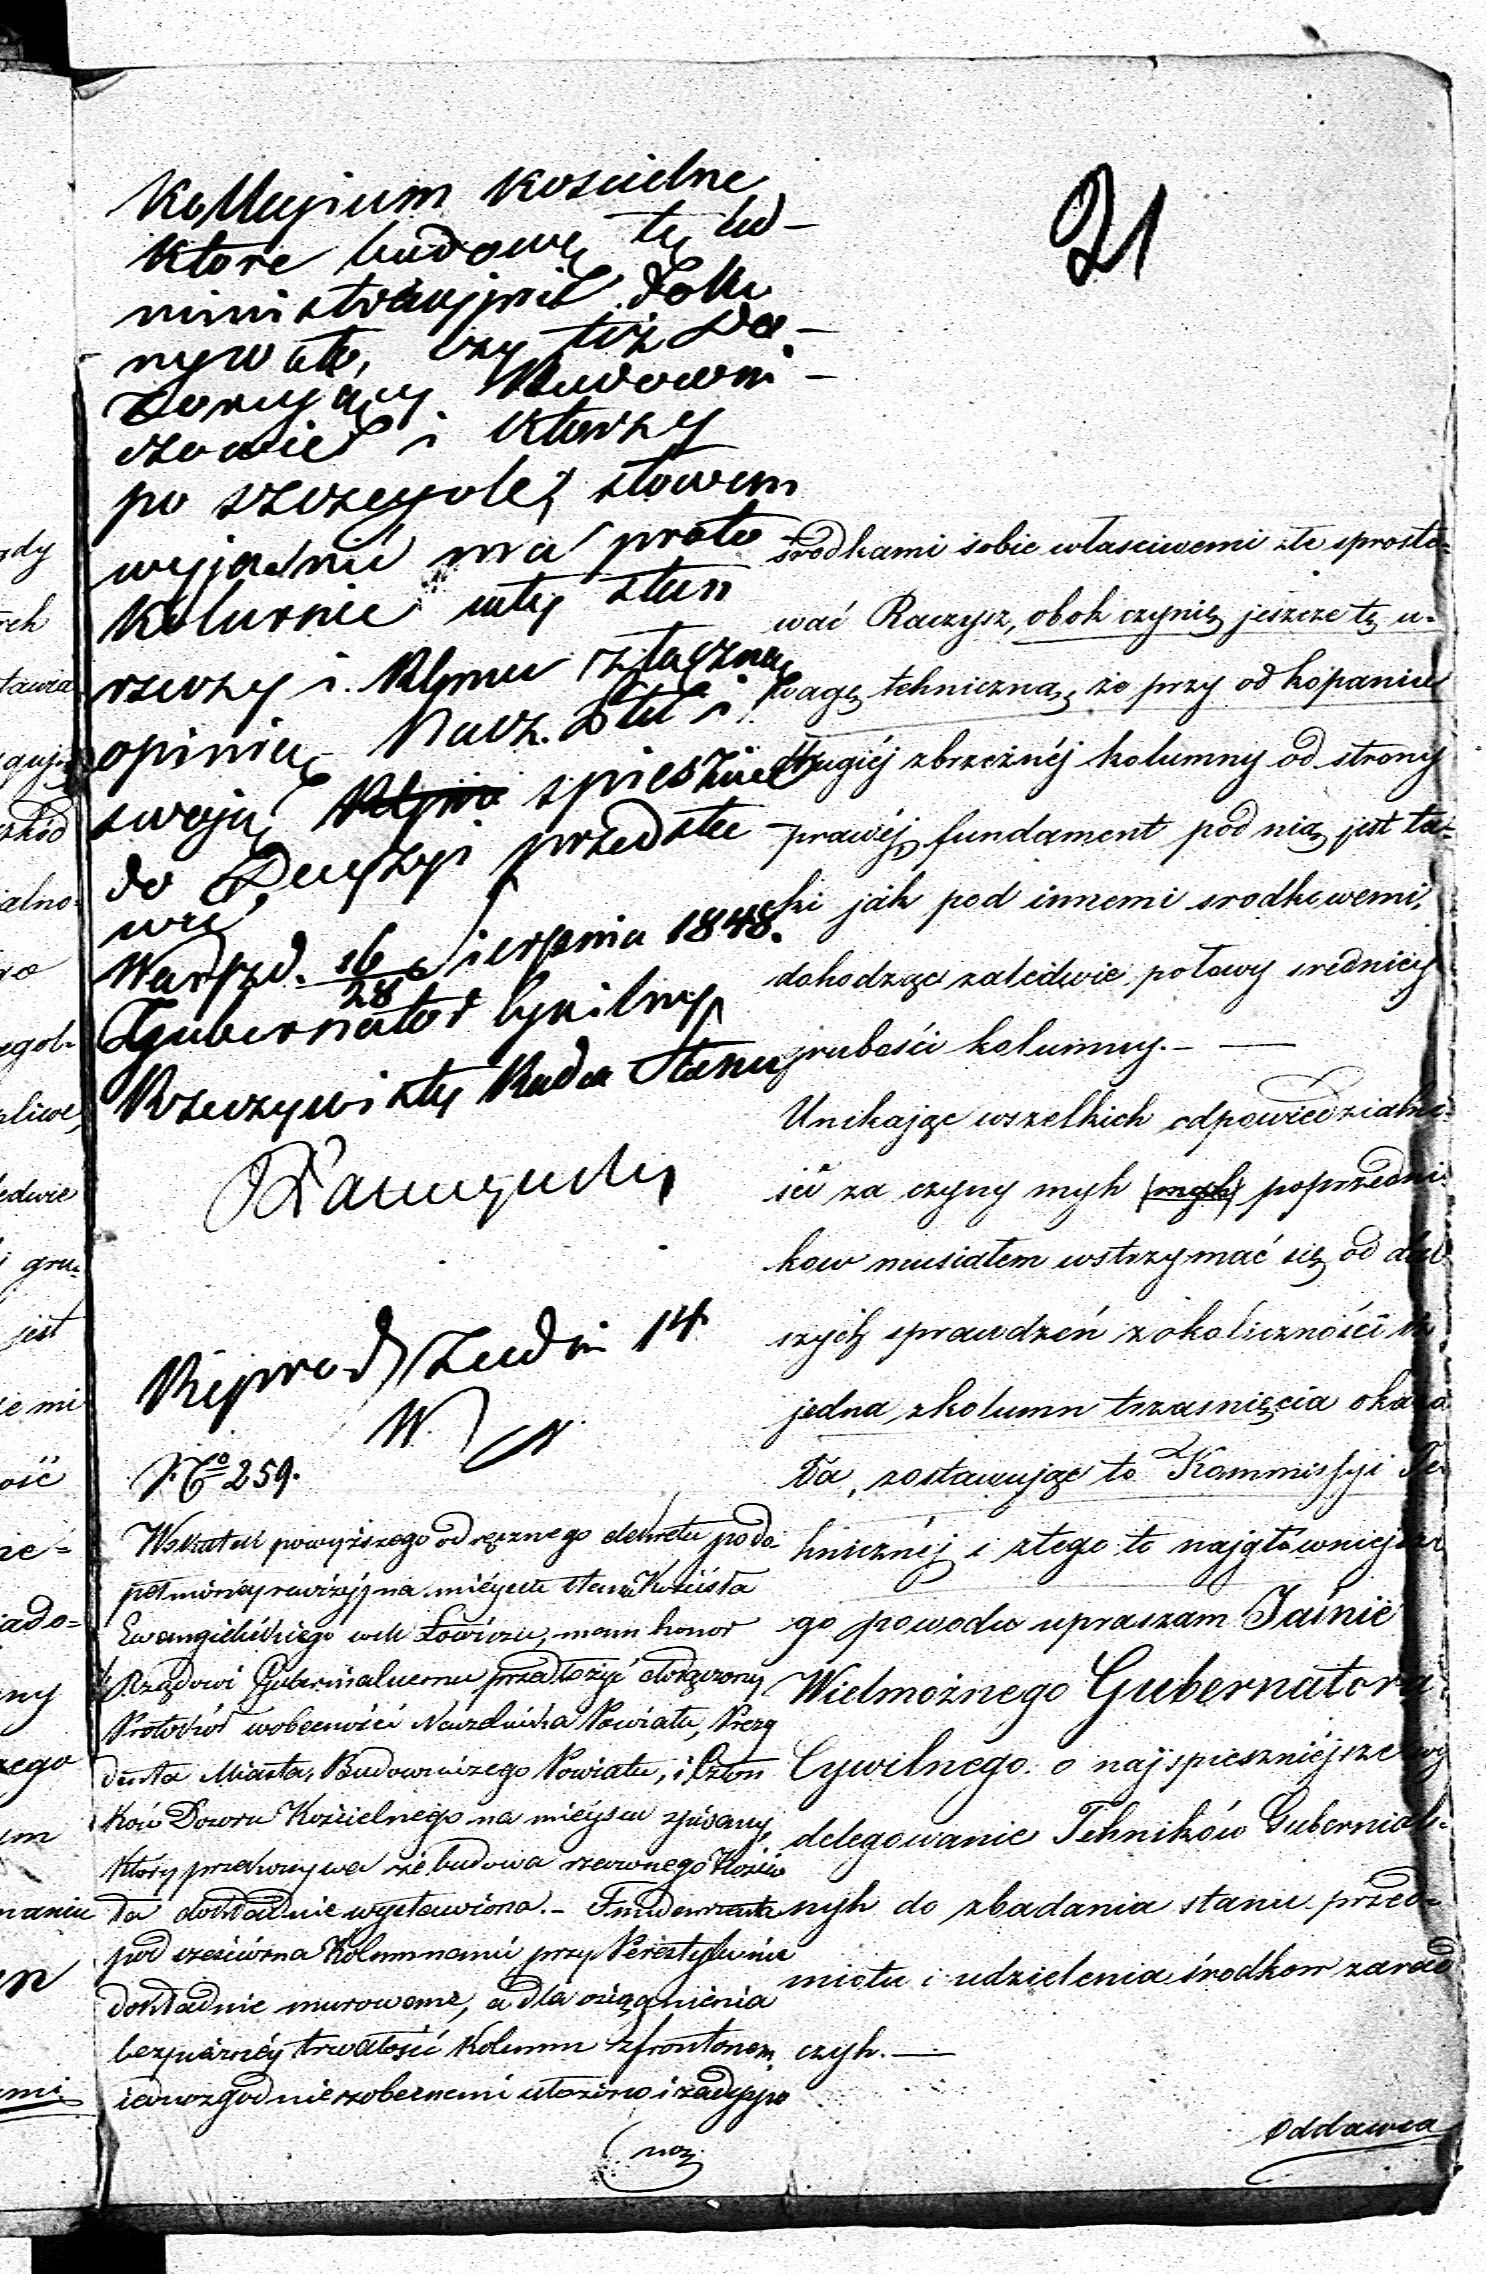 21
Kollegium Kościelne
które budowę tę ad-
ministracyjnie doko
nywało, czy też Do-
zorujący Budowni-
czowie i którzy
po szczególe, słowem
wyjaśnić ma proto
kolarnie cały stan
rzeczy i
opinią Nacz. Ptu i
swoją spiesznie
do Decyzyi przedsta
wić
Warszd. 16/28 Sierpnia 1848.
Gubernator Cywilny
Rzeczywisty Radca Stanu
14
No 259.
Wskutek powyższego odręcznego dekretu po do
pełnionej rewizyj na miéyscu stanu Kościoła
Ewangielickiego w M. Łowiczu, mam honor
Rządowi Gubernialnemu przedłożyć dołączony
Protokół w obecności Naczelnika Powiatu, Prezy
denta Miasta, Budowniczego Powiatu, i Człon
ków Dozoru Kościelnego na miéyscu spisany,
który przekonywa że budowa rzeczonego Kościo
ła dokładnie wystawiona.- Fundamenta
pod sześcioma Kolumnami przy Peristylu nie
dokładnie murowane, a dla osiągnienia
bezpiecznéy trwałości Kolumn z frontonem
iednozgodnie z obecnemi ułożono i zadecydo
środkami sobie właściwemi złe sprosto-
wać Raczysz, obok czynię jeszcze tę u-
wagę tehniczną, że przy odkopaniu
drugiéj zbrzeżnéj kolumny od strony
prawéj, fundament pod nią jest ta-
ki jak pod innemi srodkowemi,
dohodząc zaledwie połowy srednicy
grubości kolumny.-
Unikając wszelkich odpowiedzialno-
ści za czyny myh (myh) poprzedni-
kow musiałem wstrzymać się od dal
szych sprawdzeń z okoliczności że
jedna z kolumn trzasnięcia okaza
ła, zostawując to Kommissyi Te-
hnicznéj i z tego to najgłówniejsze
go powodu upraszam Jaśnie
Wielmożnego Gubernatora
Cywilnego o najspieszniéjsze wy
delegowanie Tehników Gubernial-
nyh do zbadania stanu przed-
miotu i udzielenia środkow zarad
czyh.-
Oddawca